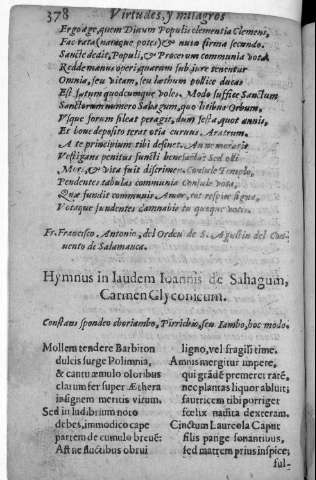 378 Virtudes, y milagros
Ergo age, quem Diuum Populi clementia Clemens,
Fac rata (namque potes) & nutu firma secundo.
Sancte dedit, Populi, & Procerum communia vota
Reddemanus operi, quarum sub iure tenentur
Omnia, seu vitam, seu læthum pollice ducas
Est fatum quodcumque voles. Modo suffice Sanctum
Sanctorum numero Sahagum, quo litibus Orbum,
Vsque forum sileat peragit, dum festa, quot annis,
Et boue deposito terat otia curuus Aratrum.
A te principium tibi desinet. An memorarier
Vestigans penitus functi
Mors, & vita fuit discrimen. Consule Templo,
Pendentes tabulas communia Consule vota,
Quæ fundit communis Amor, tot respice signa,
Votaque fundentes damnabis tu quoque votis.
Fr. Francisco Antonio, del Orden de S. Agustin del Con-
uento de Salamanca.
Hymnus in laudem Ioannis de Sahagum,
Carmen Glyconicum.
Constans spondeo choriambo, Pirrichio, seu Iambo, hoc modo.
Mollem tendere Barbiton
dulcis surge Polimnia,
& cantu æmulo oloribus
clarum fer super Æthera
insignem meritis virum.
Sed in ludibrium noto
debes, immodico cape
partem de cumulo breuē:
Ast ne fluctibus obrui
ligno, vel fragili time.
Amnis mergitur impete,
qui grādē premeret ratē,
nec plantas liquor abluit;
fautricem tibi porriget
fœlix nauita dexteram.
Cinctum Laureola Caput
filis pange sonantibus,
sed matrem prius inspice;
ful-